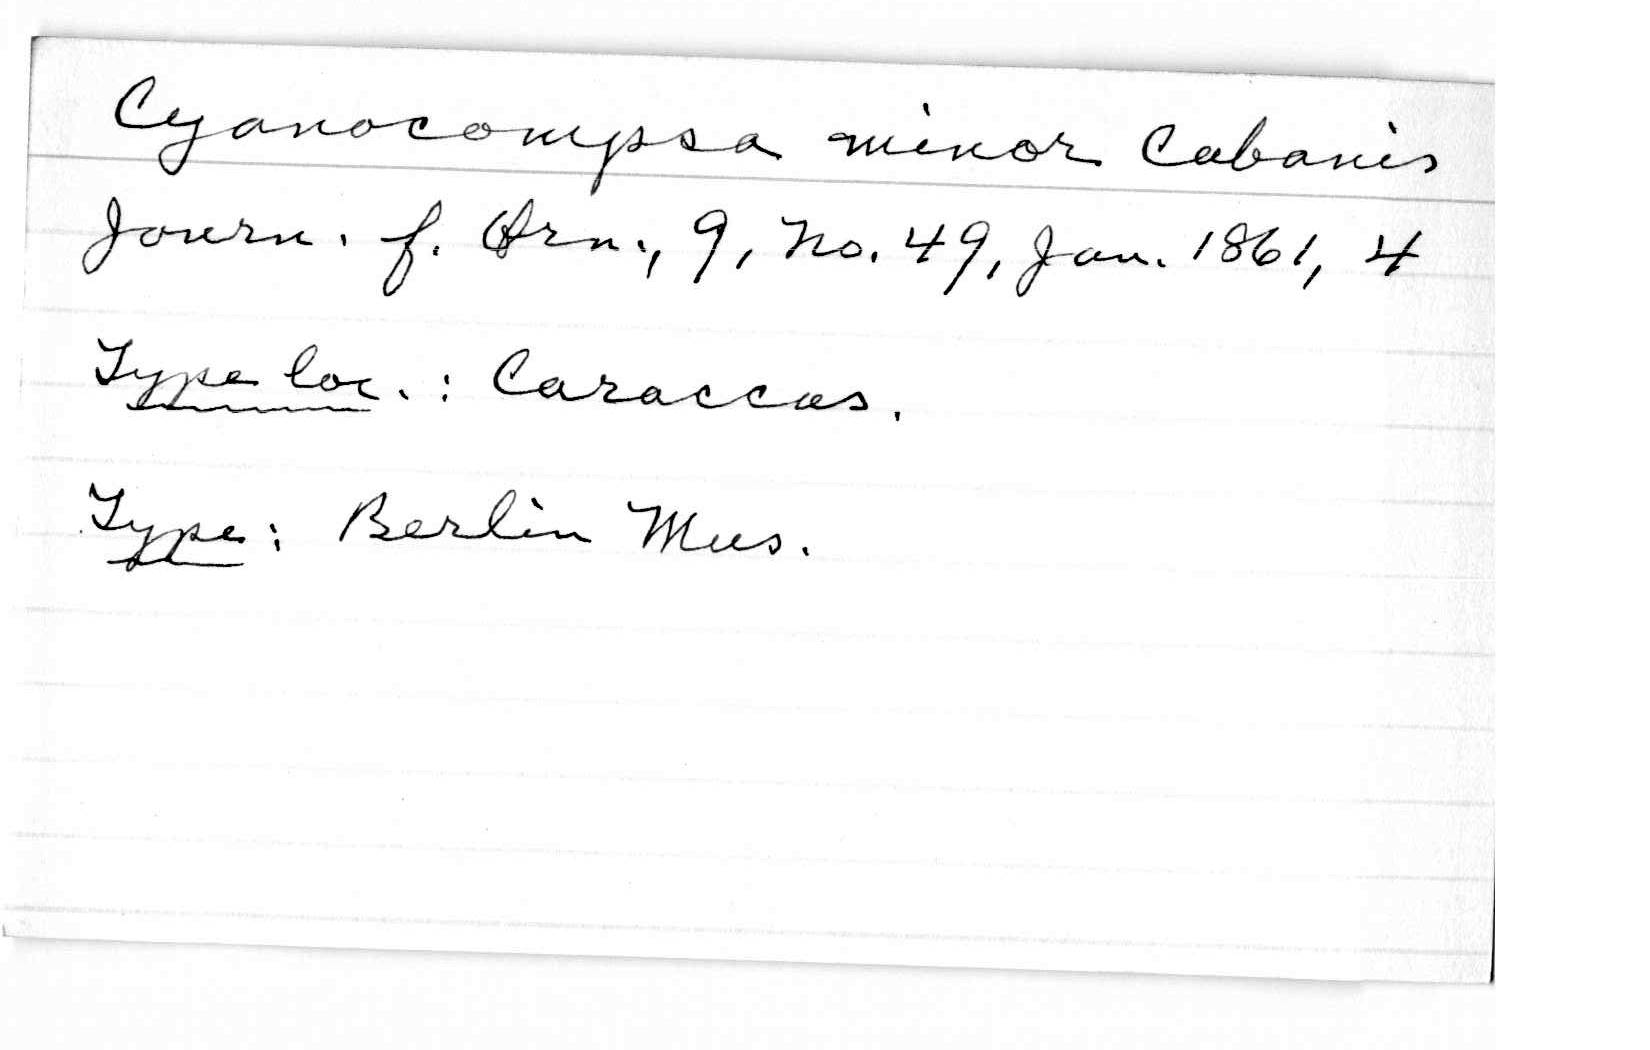 Cyanocompsa minor Cabanis
Journ. f. Orn., 9, no. 49, Jan. 1861, 4
Type loc.: Caraccas.
Type: Berlin Mus.